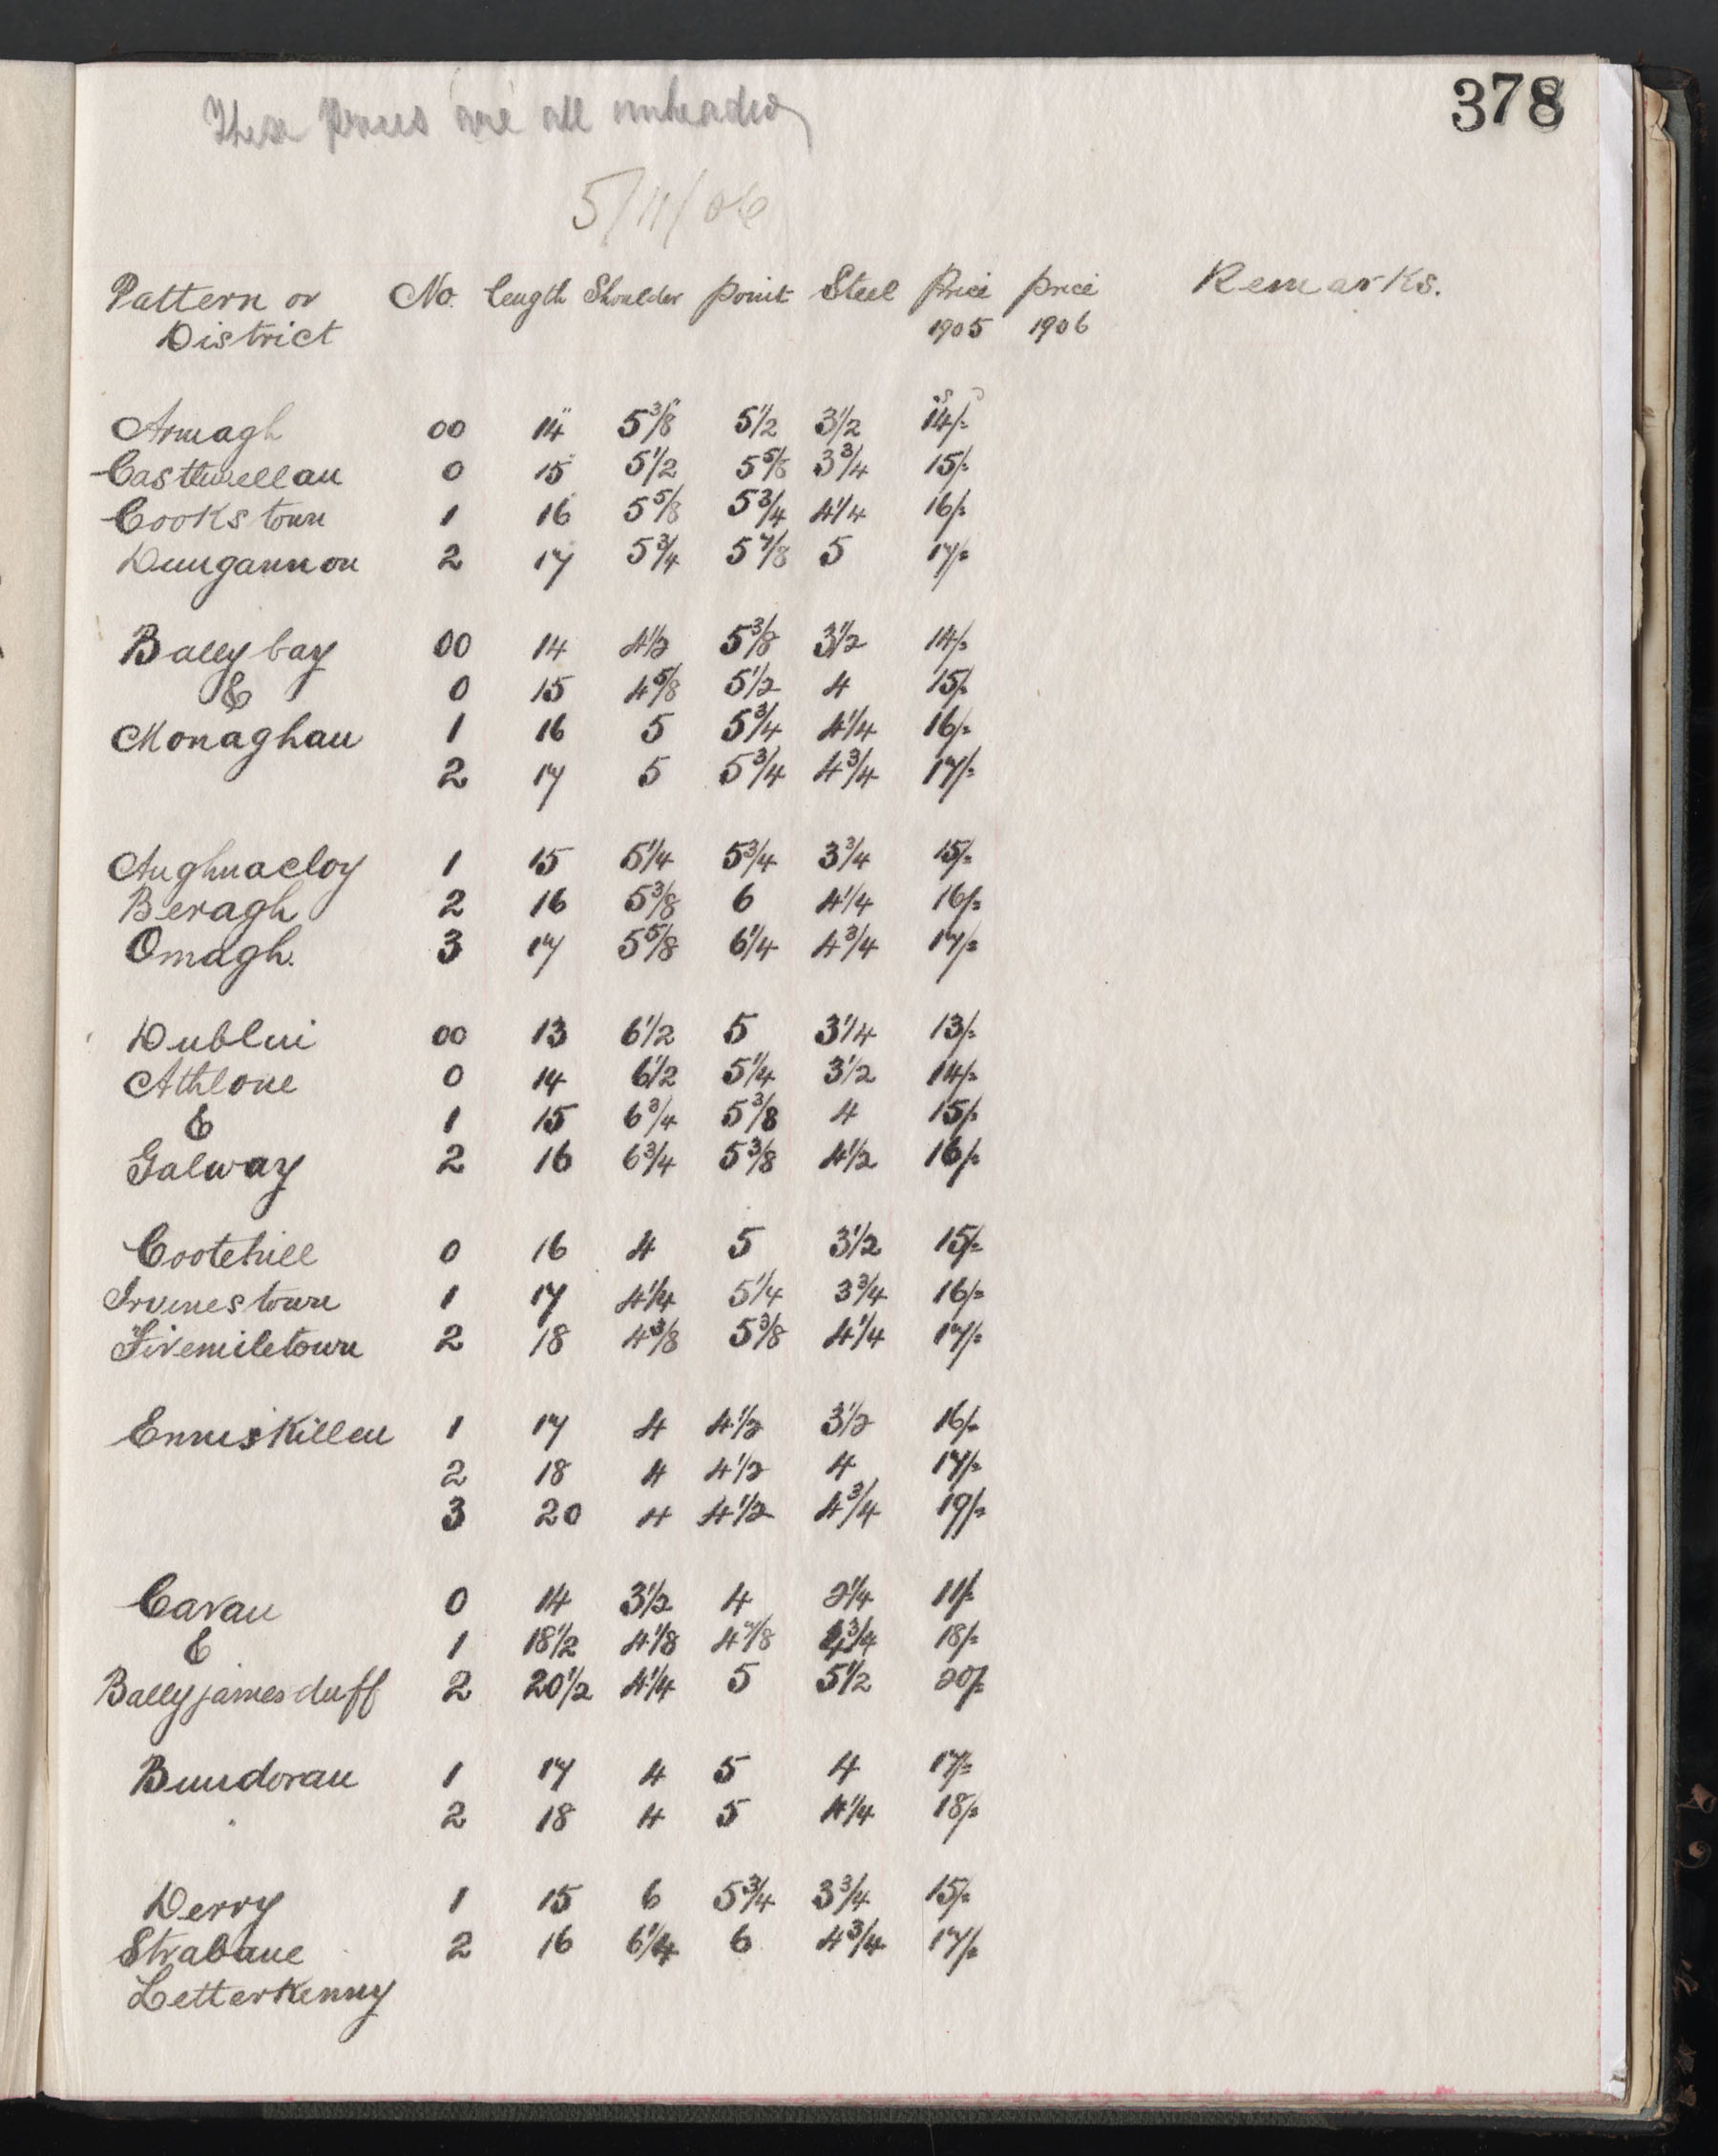 378
These prices are all unheaded
5/11/06
Pattern or No. length Shoulder point Steel Price price Remarks.
District 1905 1906
Armagh 00 14" 5 3/8" 5 1/2 3 1/2 14/-
Castlewellan 0 15 5 1/2 5 5/8 3 3/4 15/-
Cookstown 1 16 5 5/8 5 3/4 4 1/4 16/-
Dungannon 2 17 5 3/4 5 7/8 5 17/-
Ballybay 00 14 4 1/2 5 3/8 3 1/2 14/-
& 0 15 4 5/8 5 1/2 4 15/-
Monaghan 1 16 5 5 3/4 4 1/4 16/-
2 17 5 5 3/4 4 3/4 17/-
Aughnacloy 1 15 5 1/4 5 3/4 3 3/4 15/-
Beragh 2 16 5 3/8 6 4 1/4 16/-
Omagh. 3 17 5 5/8 6 1/4 4 3/4 17/-
Dublin 00 13 6 1/2 5 3 1/4 13/-
Athlone 0 14 6 1/2 5 1/4 3 1/2 14/-
& 1 15 6 3/4 5 3/8 4 15/-
Galway 2 16 6 3/4 5 3/8 4 1/2 16/-
Cootehill 0 16 4 5 3 1/2 15/-
Irvinestown 1 17 4 1/4 5 1/4 3 3/4 16/-
Fivemiletown 2 18 4 3/8 5 3/8 4 1/4 17/-
Enniskillen 1 17 4 4 1/2 3 1/2 16/-
2 18 4 4 1/2 4 17/-
3 20 4 4 1/2 4 3/4 19/-
Cavan 0 14 3 1/2 4 2 1/4 11/-
& 1 18 1/2 4 1/8 4 7/8 4 3/4 18/-
Ballyjamesduff 2 20 1/2 4 1/4 5 5 1/2 20/-
Bundoran 1 17 4 5 4 17/-
2 18 4 5 4 1/4 18/-
Derry 1 15 6 5 3/4 3 3/4 15/-
Strabane 2 16 6 1/4 6 4 3/4 17/-
Letterkenny